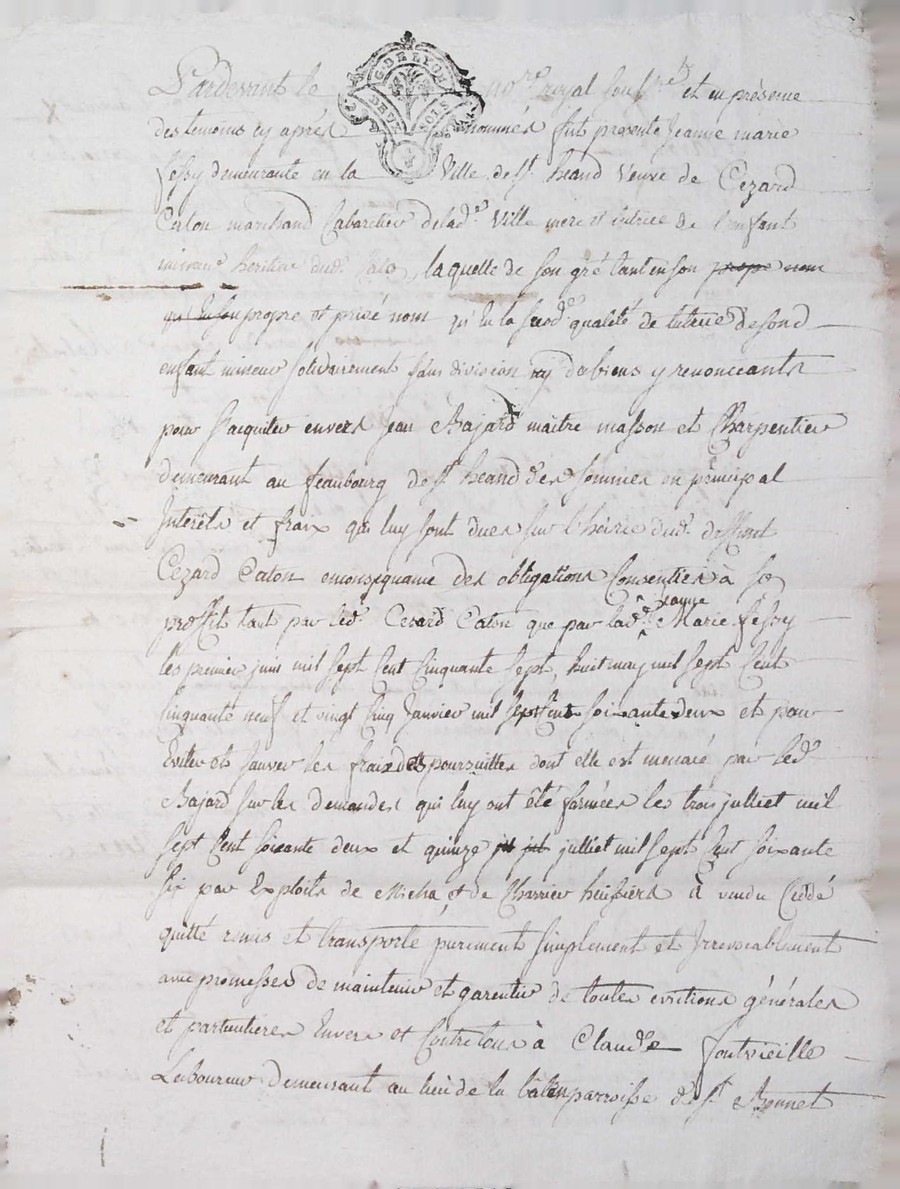 Pardevant le no.re royal souss.né et en présence
G. DE LYON
DEUX SOLS
des temoins cy après nommés fut presente Jeanne marie
fessy demeurante en la Ville de S.t heand Veuve de Cezard
Caton marchand Cabaretier delad.e Ville mere et tutrice de l'enfant
mineur heritier dud. Cato, laquelle de son gré tant en son propre nom
qu'en son propre et privé nom qu'en la susd.e qualité de tutrice desond
enfant mineur solidairement sans division ny de biens y renonceants
pour s'acquiter envers jean Bajard maitre masson et Charpentier
demeurant au feaubourg de S.t heand des sommes en principal
Interêts et fraix qui luy sont dues sur l'hoirie dud. deffunt
Cezard Caton enconsequance des obligations Consenties à so
proffit tant par led. Cezard Caton que par lad.e Jeanne Marie fessy
les premier juin mil sept Cent Cinquante sept, huit may mil sept Cent
Cinquante neuf et vingt Cinq Janvier mil sept Cent soixante deux et pour
Eviter et sauver les fraix des poursuittes dont elle est menacé par led.
Bajard sur les demandes qui luy ont été formées les trois julliet mil
sept Cent soixante deux et quinze jll jull julliet mil sept Cent soixante
six par Exploits de Micha et de Charrier huissiers à vendu Ceddé
quitté remis et transporté purement simplement et Irrevocablement
avec promesses de maintenir et garentir de toutes evictions générales
et particulieres Envers et Contre tous à Claude fontvieille
Laboureur demeurant au lieu de la parroisse de S.t Bonnet